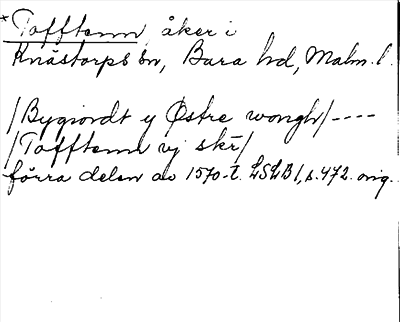 *Tofftenn, åker i
Knästorps sn, Bara hd, Malm. l.
/Bygiordt y Østre wongh/----
/Tofftenn vj skr/
förra delen av 1570-t. LSLB I, s. 472. orig.